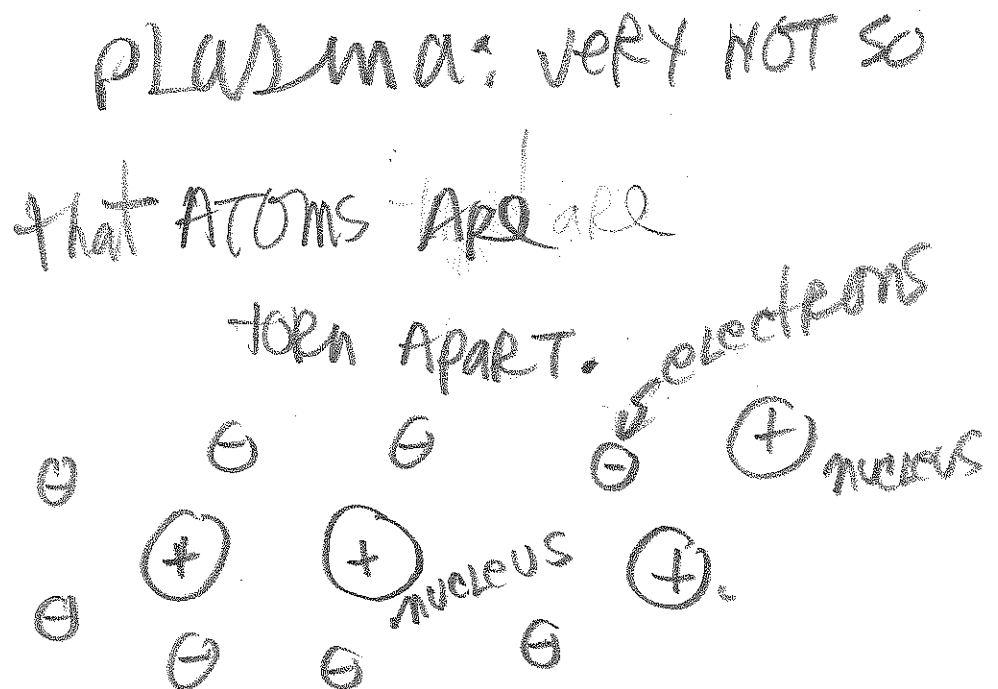 plasma: very NOT so
that ATOMS Are are
torn Apart.
electrons
nucleus
nucleus